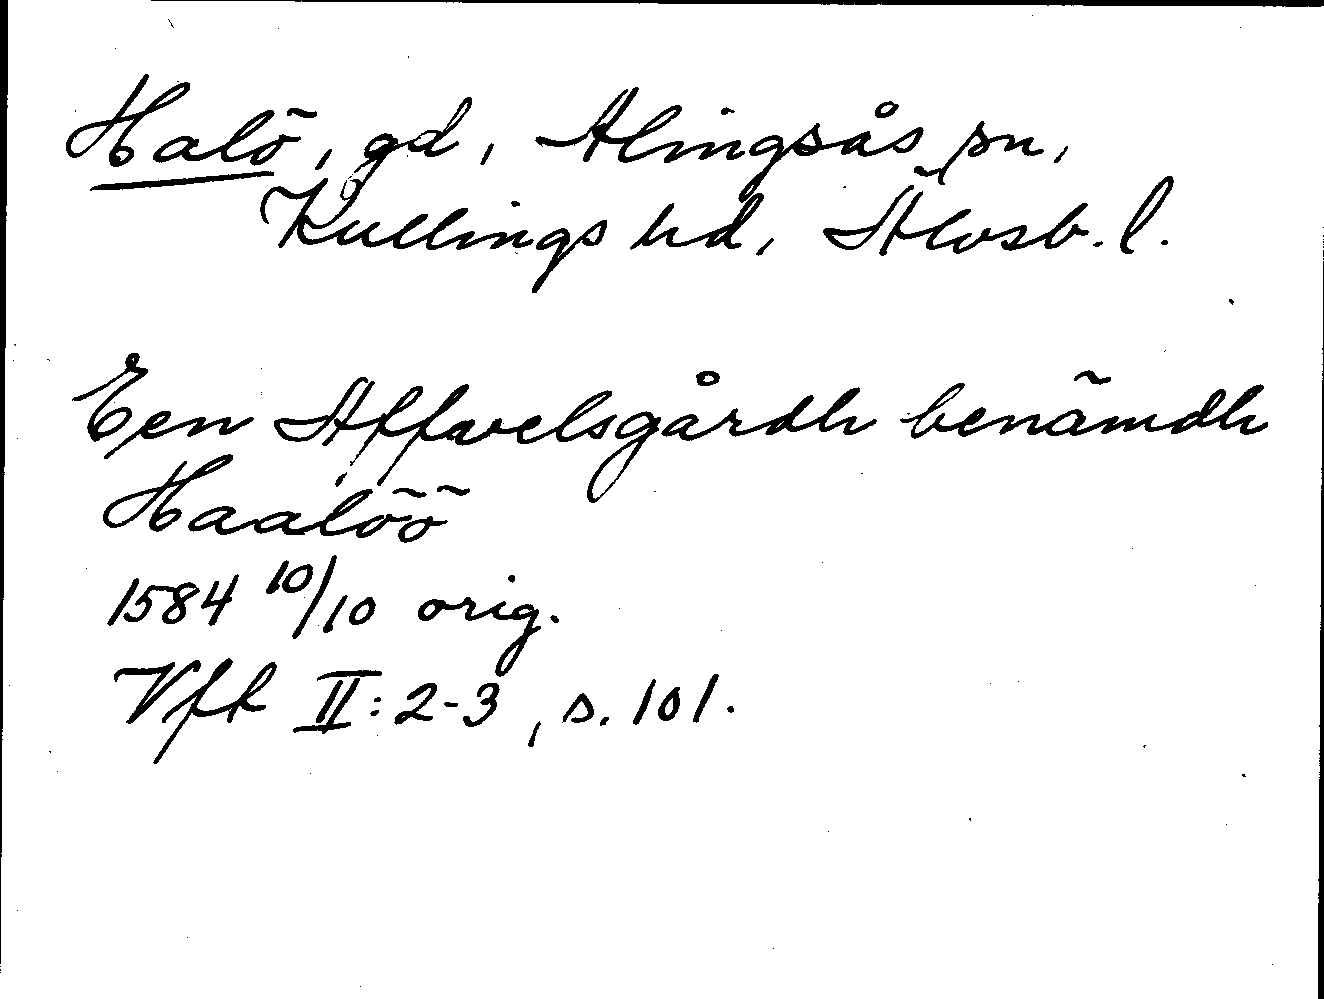 Halö, gd, Alingsås sn,
Kullings hd, Älvsb. l.
Een Affvelsgårdh benämdh
Haalöö
1584 10/10 orig.
Vfk II: 2-3, s. 101.